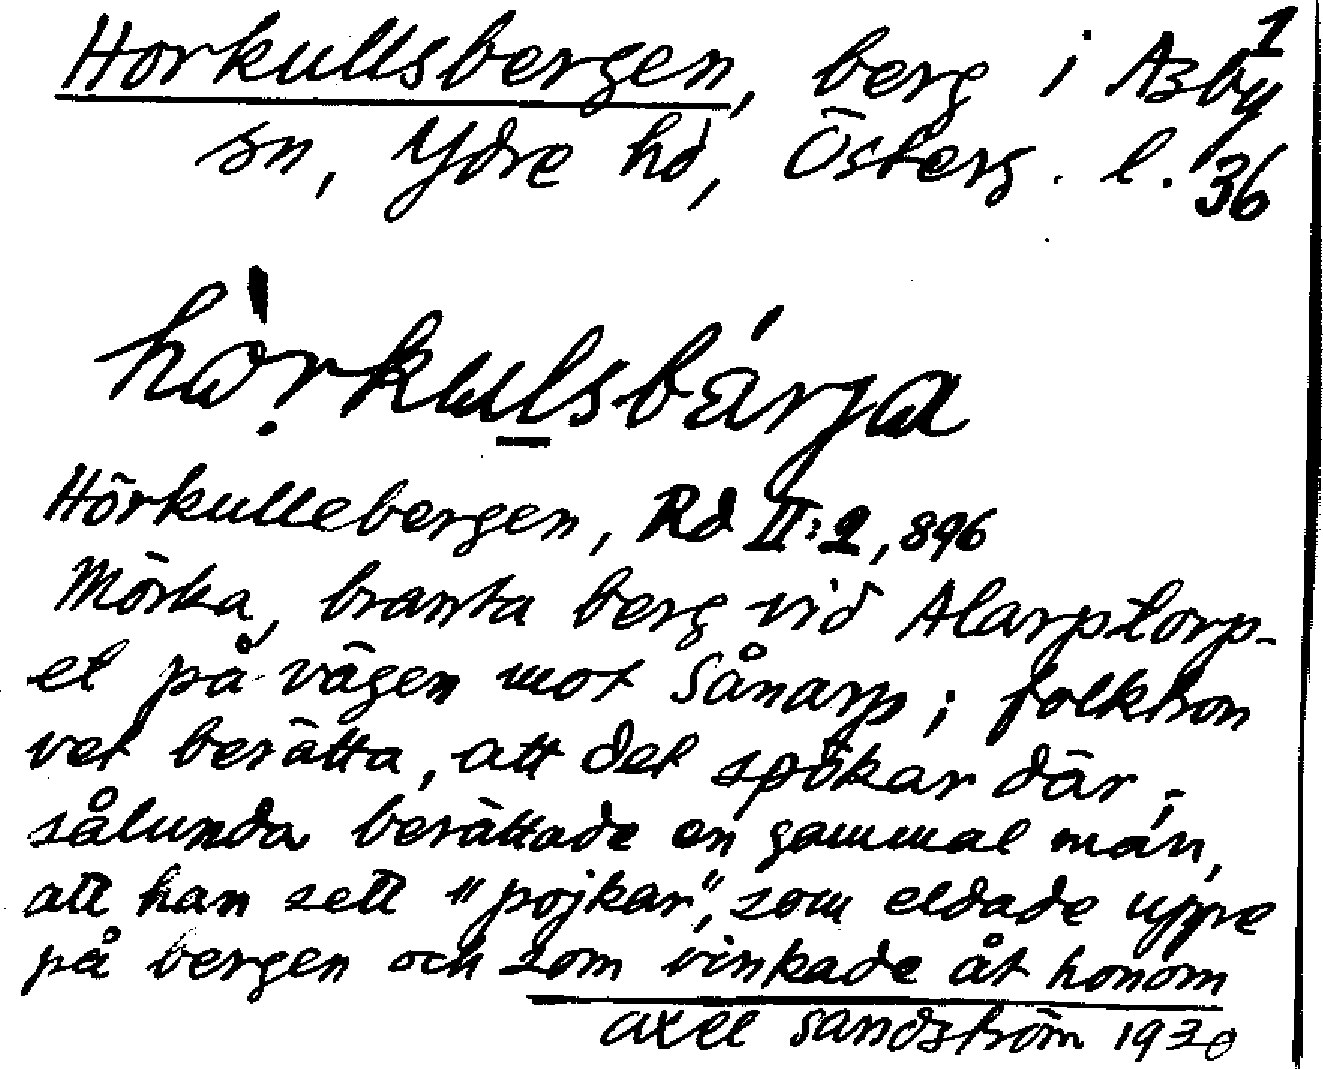 Horkullsbergen, berg i Asby 1
sn, Ydre hd, Österg. l. 36
hörkulsbärja
Hörkullebergen, Rd II:2, 896
Mörka, branta berg vid Alarpstorp-
et på vägen mot Sånarp; folktron
vet berätta, att det spökar där;
sålunda berättade en gammal man,
att han sett "pojkar", som eldade uppe
på bergen och som vinkade åt honom
Axel Sandström 1930